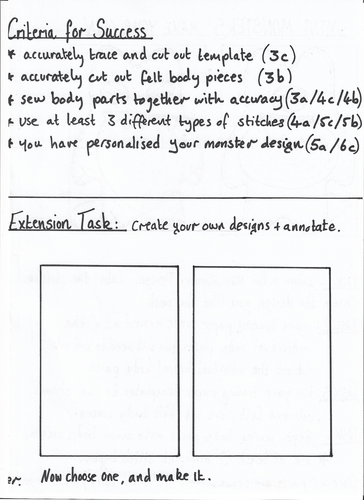 Criteria for Success
* accurately trace and cut out template (3c)
* accurately cut out felt body pieces (3b)
* sew body parts together with accuracy (3a/4c/4b)
* use at least 3 different types of stitches (4a/5c/5b)
* you have personalised your monster design (5a/6c)
Extension Task: Create your own designs + annotate.
er. Now choose one, and make it.